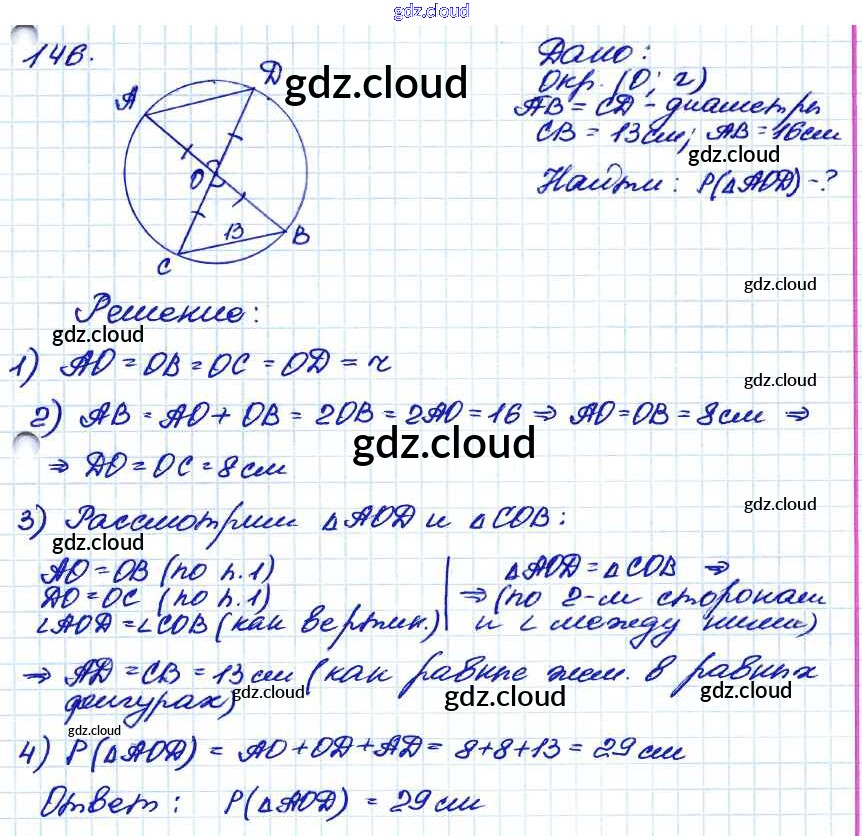 gdz.cloud
146.
Дано:
Окр. (O; r)
AB = CD - диаметры
CB = 13 см; AB = 16 см
gdz.cloud
gdz.cloud
Найти: P(△AOD) - ?
A
D
O
13
B
C
gdz.cloud
Решение:
gdz.cloud
1) AO = OB = OC = OD = r
gdz.cloud
2) AB = AO + OB = 2OB = 2AO = 16 ⇒ AO = OB = 8 см ⇒
gdz.cloud
⇒ DO = OC = 8 см
gdz.cloud
3) Рассмотрим △AOD и △COB:
gdz.cloud
AO = OB (по п.1)
DO = OC (по п.1)
∠AOD = ∠COB (как вертик.)
△AOD = △COB ⇒
⇒ (по 2-м сторонам
и ∠ между ними)
⇒ AD = CB = 13 см (как равные эл. в равных
фигурах)
gdz.cloud
gdz.cloud
gdz.cloud
gdz.cloud
4) P(△AOD) = AO + OD + AD = 8 + 8 + 13 = 29 см
Ответ: P(△AOD) = 29 см